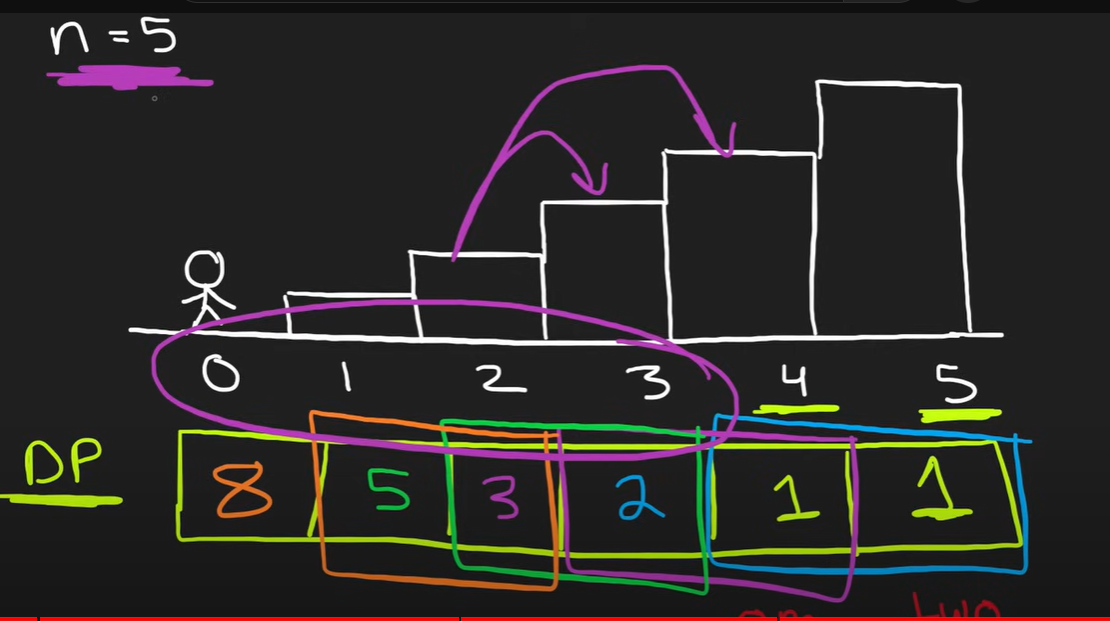 n = 5
0 1 2 3 4 5
DP 8 5 3 2 1 1
two